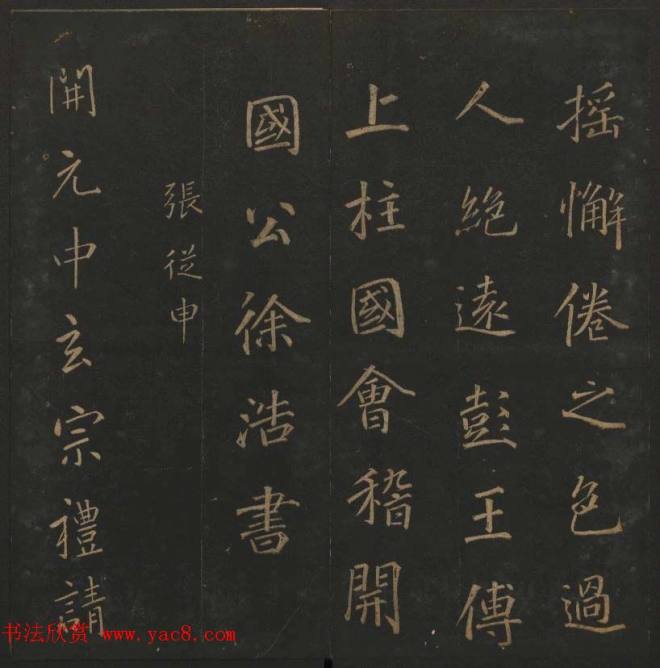 摇懈倦之色過
人絶遠彭王傅
上柱國會稽開
國公徐浩書
張從申
開元中玄宗禮請
书法欣赏 www.yac8.com